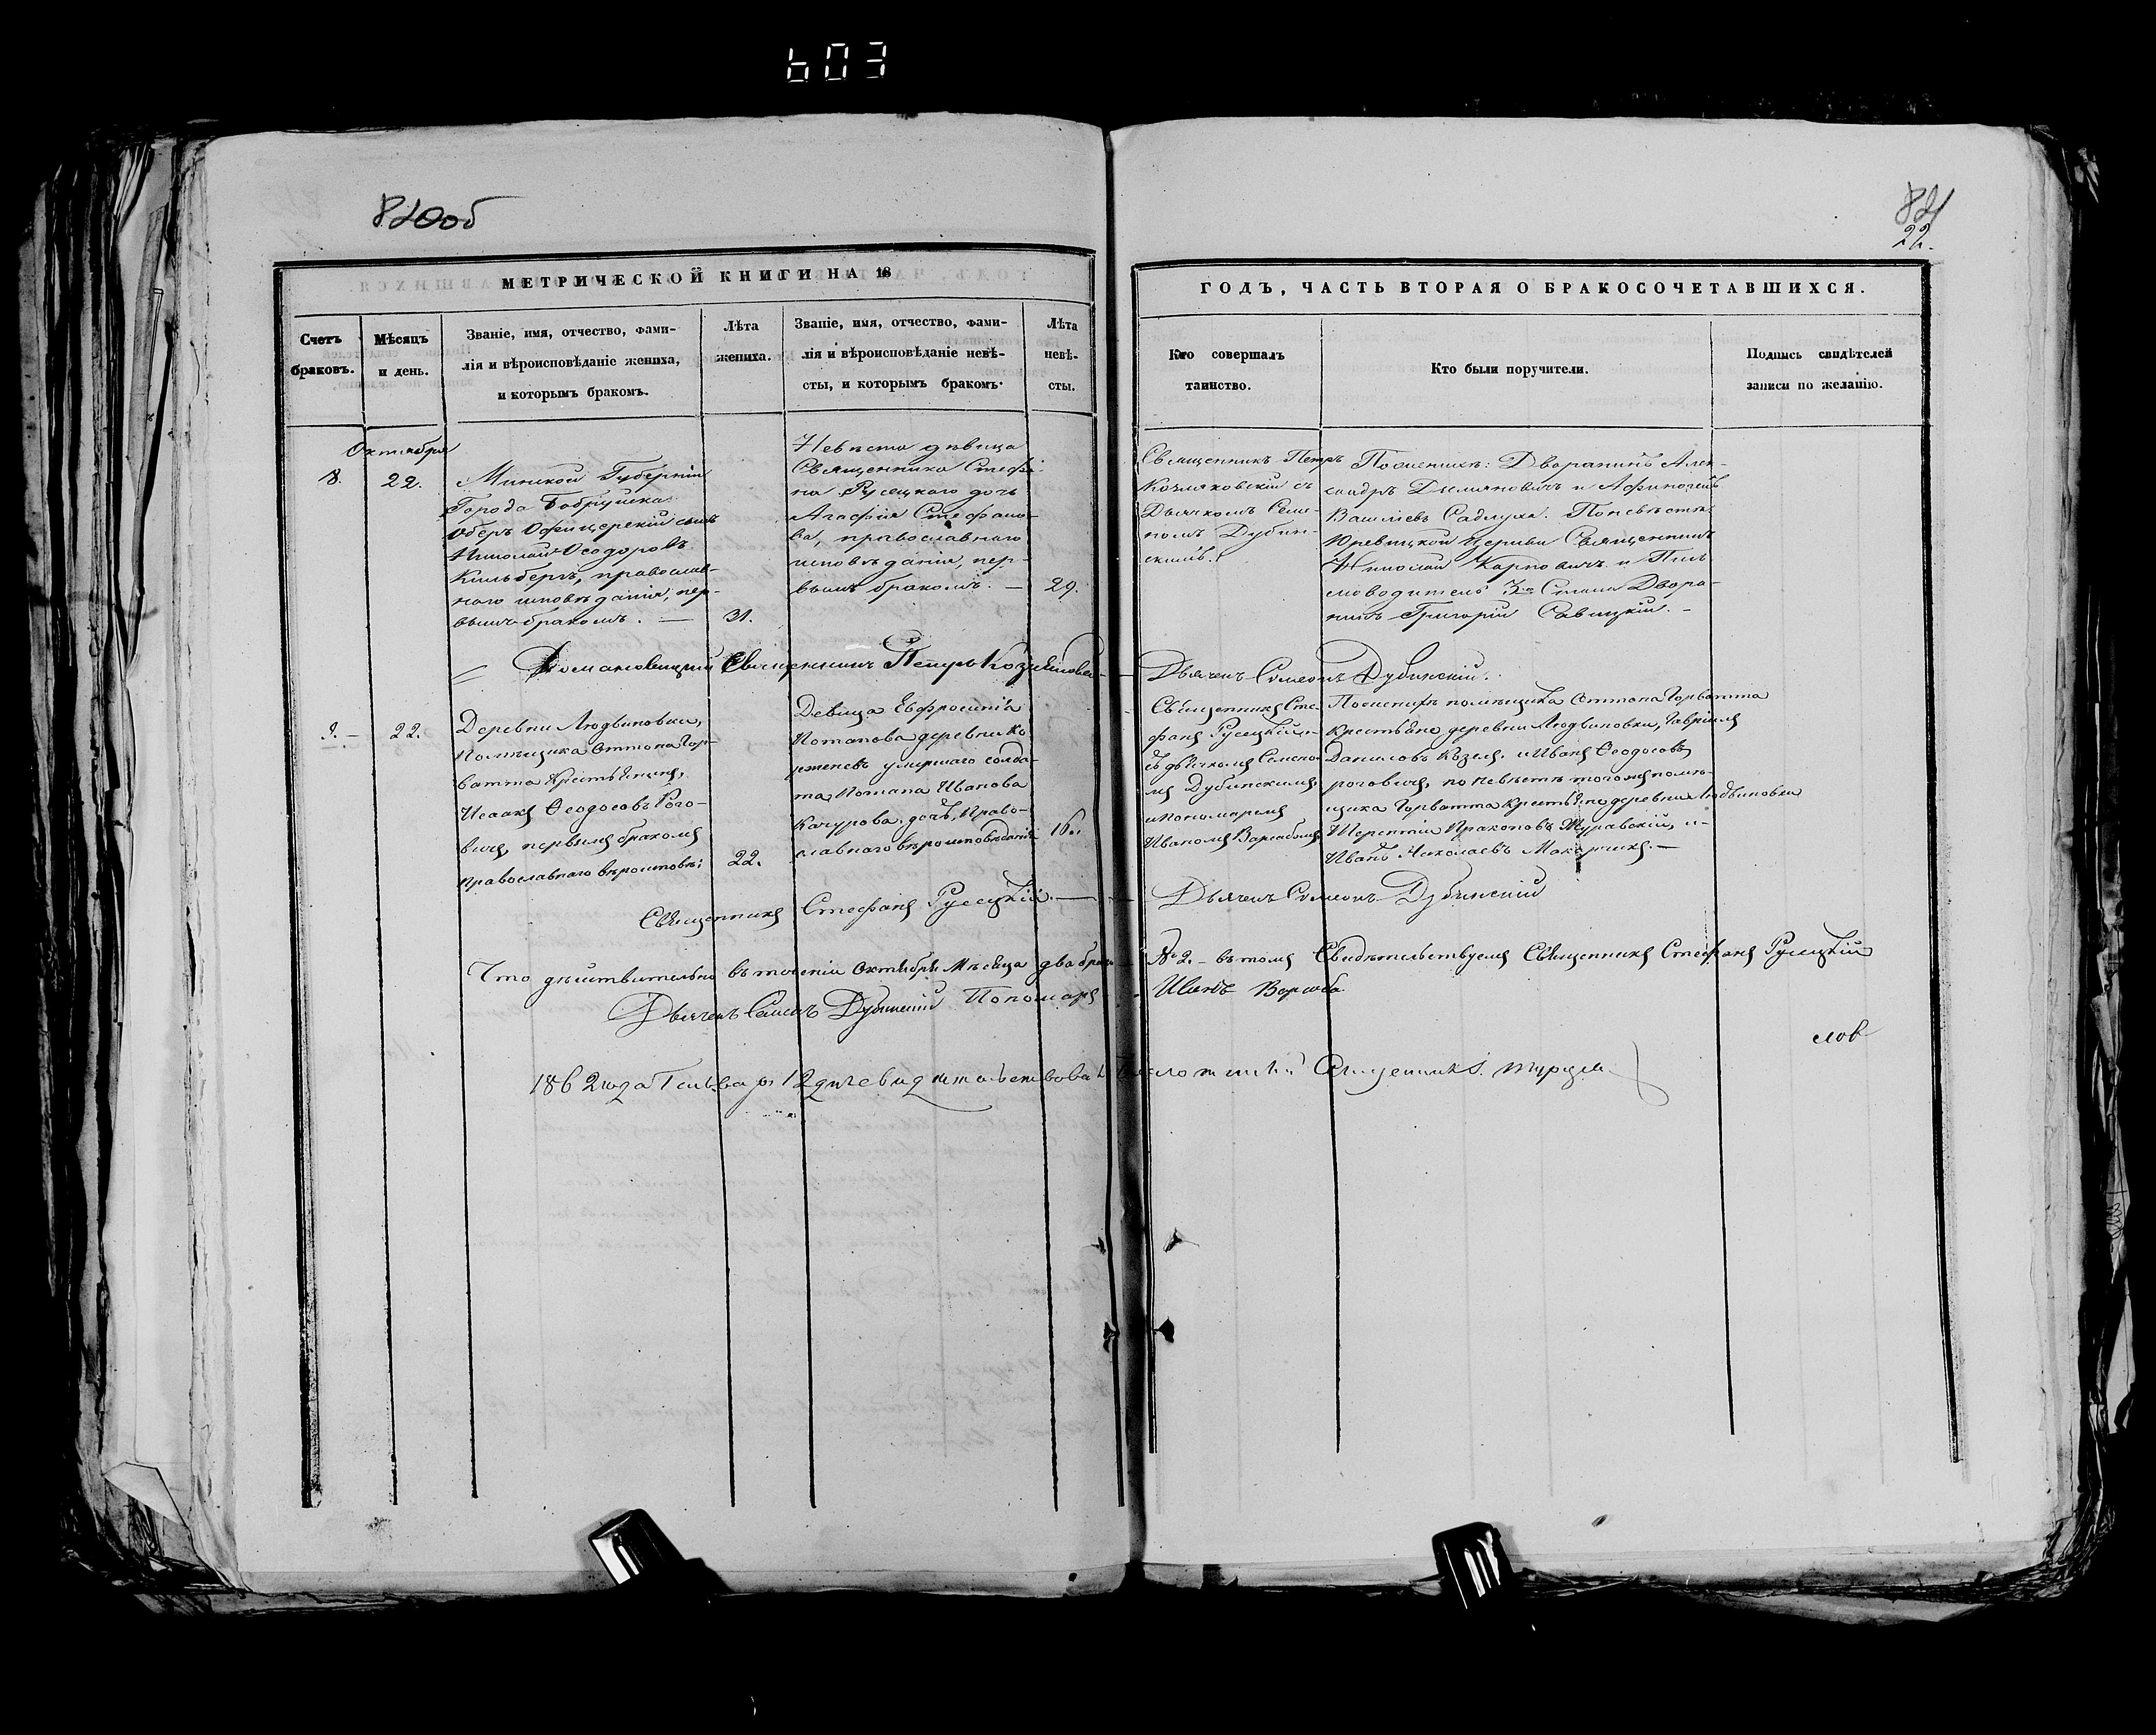 603
820об
821
22.
МЕТРИЧЕСКОЙ КНИГИ НА 18
ГОДЪ, ЧАСТЬ ВТОРАЯ О БРАКОСОЧЕТАВШИХСЯ.
Счетъ
браковъ.
Мѣсяцъ
и день.
Званіе, имя, отчество, фами-
лія и вѣроисповѣданіе жениха,
и которымъ бракомъ.
Лѣта
жениха.
Званіе, имя, отчество, фами-
лія и вѣроисповѣданіе невѣ-
сты, и которымъ бракомъ.
Лѣта
невѣ-
сты.
Кто совершалъ
таинство.
Кто были поручители.
Подпись свидѣтелей
записи по желанію.
Октября
8.
22.
Минской Губерніи
Города Бобруйска
Оберъ Офицерскій сынъ
Николай Ѳеодоровъ
Кильберъ, православ-
наго исповѣданія, пер-
вымъ бракомъ. —
31.
Невѣста дѣвица
Священника Стефа-
на Русецкаго дочь
Агафія Стефано-
ва, православнаго
исповѣданія, пер-
вымъ бракомъ. —
29.
Священникъ Петръ
Козляковскій съ
Дьячкомъ Симе-
ономъ Дубин-
скимъ.
По женихѣ: Дворянинъ Алек-
сандръ Демяновичъ и Афиногенъ
Васильевъ Садлуха. По невѣстѣ:
Юревицкой Церкви Священникъ
Николай Карповичъ и Пись-
моводитель 3го Стана Дворя-
нинъ Григорій Савицкій. —
Домановицкій Священникъ Петръ Козляковскій
Дьячекъ Симеонъ Дубинскій.
9. —
22.
Деревни Людвиновки,
Помѣщика Оттона Гор-
ватта Крестьянинъ,
Исаакъ Ѳеодосовъ Рого-
вичъ, первымъ бракомъ
Православнаго вѣроисповѣ:
22.
Девица Евфросинія
Потапова деревни Ко
рженевъ умершаго солда-
та Потапа Иванова
Качурова дочь, Право-
славнаго вѣроисповѣданія
16.
Священникъ Сте-
фанъ Русецкій
съ дьячкомъ Семено-
мъ Дубинскимъ
и пономаремъ
Иваномъ Варсабомъ
По женихѣ помѣщика Оттона Горватта
крестьяне деревни Людвиновки, Гавріилъ
Даниловъ Козелъ, и Иванъ Ѳеодосовъ
роговичъ, по невѣстѣ тогожъ помѣ-
щика Горватта крестьяне деревни Людвиновки
Терентій Прокоповъ Журавскій, и
Иванъ Николаевъ Макарчикъ. —
Священникъ Стефанъ Русецкій. —
Дьячекъ Симеонъ Дубинскій
Что дѣйствительно въ теченіи Октября Мѣсяца два брака № 2. — въ томъ Свидѣтельствуемъ Священникъ Стефанъ Русецкій
Дьячекъ Семенъ Дубинскій Пономарь Иванъ Варсаба.
1862 года Генваря 12 дня свидѣтельствовалъ Священникъ